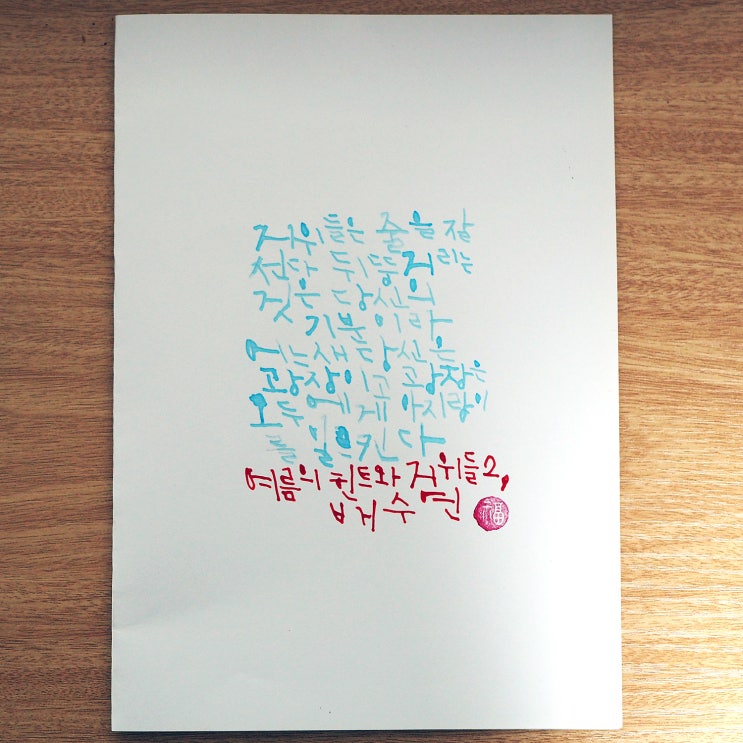 거위들은 줄을 잘
선다 뒤뚱거리는
것은 당신의
기분이라
어느새 당신은
광장이고 광장은
모두에게 아지랑이
를 일으킨다
여름의 힌트와 거위들2,
배수연
福